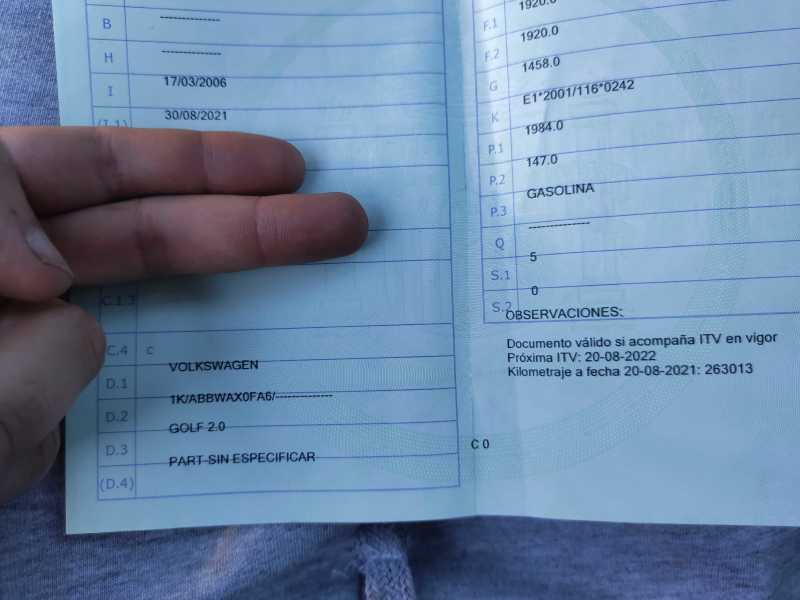 B
--------------
H
--------------
I
17/03/2006
(I.1)
30/08/2021
C.1.3
C.4
c
D.1
VOLKSWAGEN
D.2
1K/ABBWAX0FA6/--------------
D.3
GOLF 2.0
(D.4)
PART-SIN ESPECIFICAR
F.1
1920.0
F.2
1920.0
G
1458.0
K
E1*2001/116*0242
P.1
1984.0
P.2
147.0
P.3
GASOLINA
Q
--------------
S.1
5
S.2
0
OBSERVACIONES:
Documento válido si acompaña ITV en vigor
Próxima ITV: 20-08-2022
Kilometraje a fecha 20-08-2021: 263013
C 0